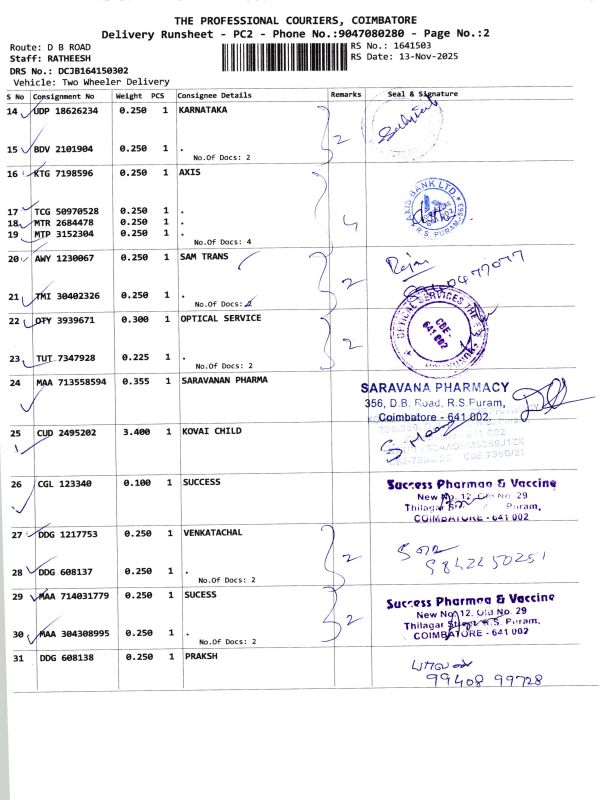 THE PROFESSIONAL COURIERS, COIMBATORE
Delivery Runsheet - PC2 - Phone No.:9047080280 - Page No.:2
Route: D B ROAD
RS No.: 1641503
Staff: RATHEESH
RS Date: 13-Nov-2025
DRS No.: DCJB164150302
Vehicle: Two Wheeler Delivery
S No Consignment No Weight PCS Consignee Details Remarks Seal & Signature
14 UDP 18626234 0.250 1 KARNATAKA
2
15 BDV 2101904 0.250 1 .
No.Of Docs: 2
16 KTG 7198596 0.250 1 AXIS
AXIS BANK LTD.
R.S. PURAM
17 TCG 50970528 0.250 1 .
18 MTR 2684478 0.250 1 .
4
19 MTP 3152304 0.250 1 .
No.Of Docs: 4
20 AWY 1230067 0.250 1 SAM TRANS
2
21 TMI 30402326 0.250 1 .
No.Of Docs: 2
22 OTY 3939671 0.300 1 OPTICAL SERVICE
OPTICAL SERVICES
CBE-
641 002
2
23 TUT 7347928 0.225 1 .
No.Of Docs: 2
24 MAA 713558594 0.355 1 SARAVANAN PHARMA
SARAVANA PHARMACY
356, D.B. Road, R.S.Puram,
Coimbatore - 641 002.
25 CUD 2495202 3.400 1 KOVAI CHILD
26 CGL 123340 0.100 1 SUCCESS
Success Pharmaa & Vaccine
New No. 12, Old No. 29
Thilagar Puram,
COIMBATORE - 641 002
27 DDG 1217753 0.250 1 VENKATACHAL
2
28 DDG 608137 0.250 1 .
No.Of Docs: 2
29 MAA 714031779 0.250 1 SUCESS
Success Pharmaa & Vaccine
New No. 12, Old No. 29
Thilagar R.S. Puram,
COIMBATORE - 641 002
2
30 MAA 304308995 0.250 1 .
No.Of Docs: 2
31 DDG 608138 0.250 1 PRAKSH
99408 99728